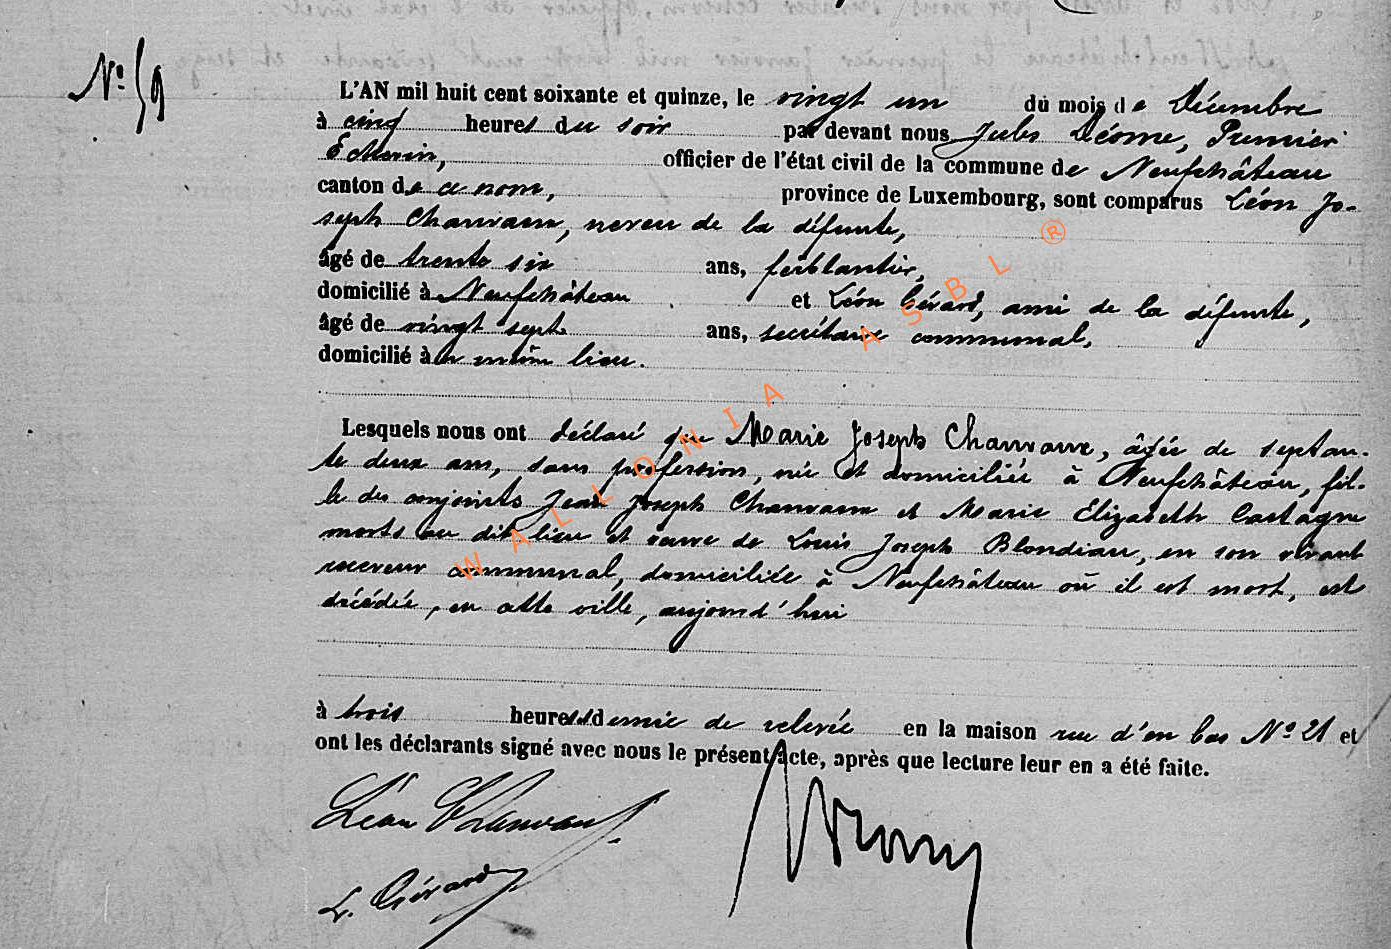 N° 59
L'AN mil huit cent soixante et quinze, le vingt un du mois de Décembre
à cinq heures du soir par devant nous Jules Déome, Premier
Echevin, officier de l'état civil de la commune de Neufchâteau
canton de ce nom, province de Luxembourg, sont comparus Léon Jo-
seph Chanvaux, neveu de la défunte,
âgé de trente six ans, ferblantier,
domicilié à Neufchâteau et Léon Gérard, ami de la défunte,
âgé de vingt sept ans, secrétaire communal,
domicilié à même lieu.
Lesquels nous ont déclaré que Marie Joseph Chanvaux, âgée de septan-
te deux ans, sans profession, née et domiciliée à Neufchâteau, fil-
le des conjoints Jean Joseph Chanvaux et Marie Elizabeth Castagne
morts au dit lieu et veuve de Louis Joseph Blondiau, en son vivant
receveur communal, domiciliée à Neufchâteau où il est mort, est
décédée, en cette ville, aujourd'hui
à trois heures demie de relevée en la maison rue d'en bas N° 21 et
ont les déclarants signé avec nous le présent acte, après que lecture leur en a été faite.
Léon Chanvaux
L. Gérard
WALLONIA ASBL ®